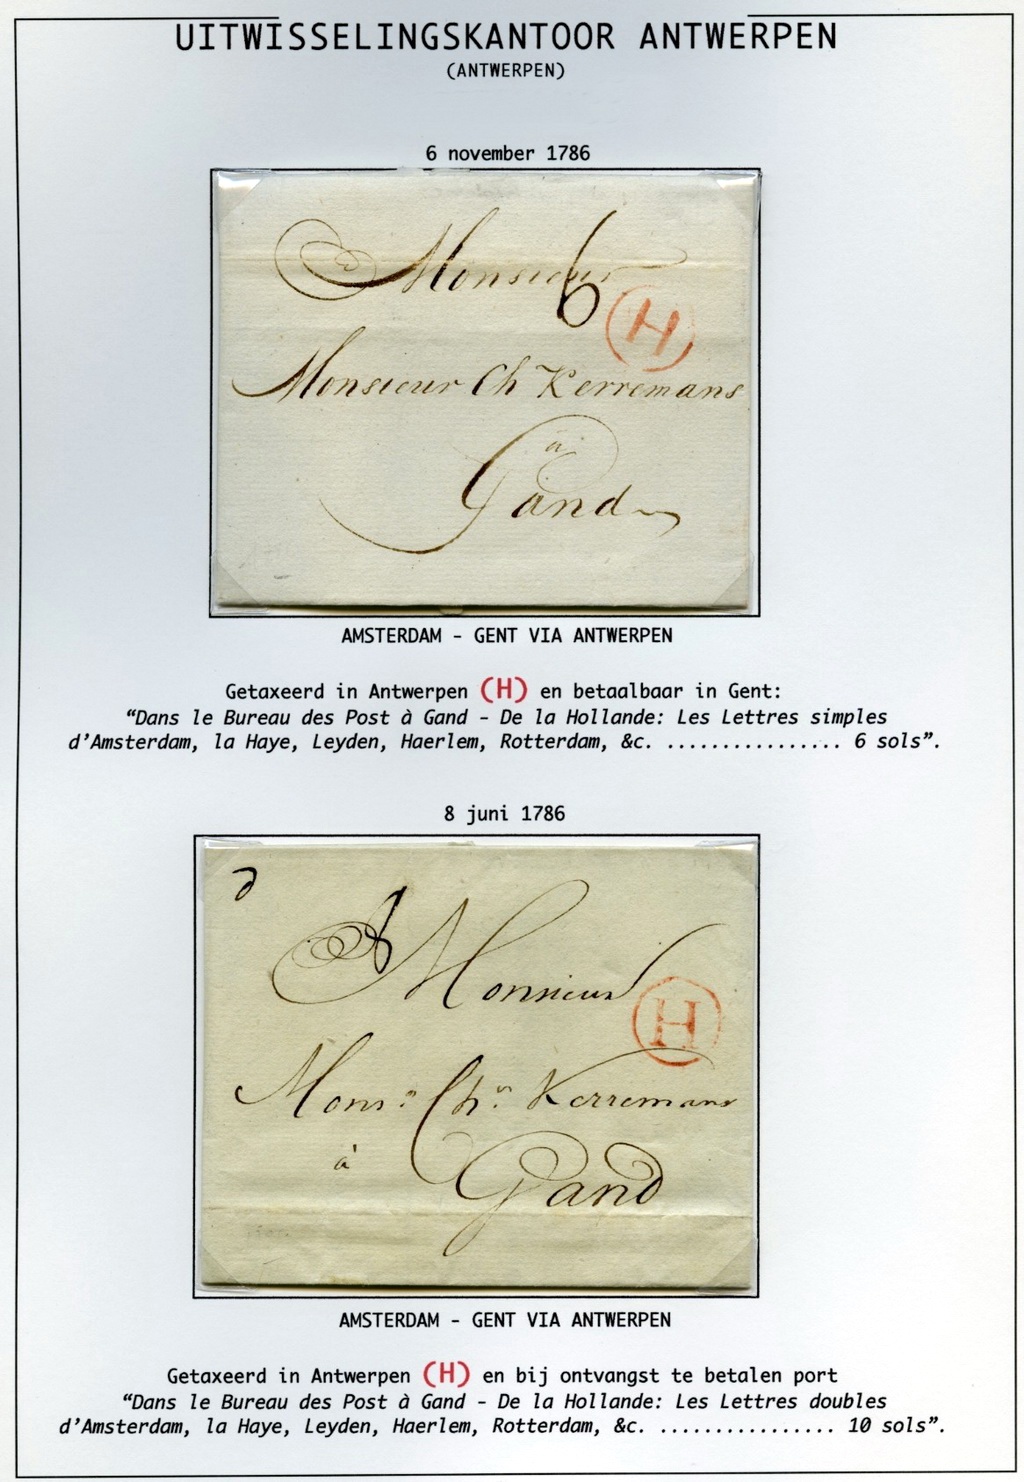 UITWISSELINGSKANTOOR ANTWERPEN
(ANTWERPEN)
6 november 1786
Monsieur
6
H
Monsieur Ch Kerremans
à
Gand
AMSTERDAM - GENT VIA ANTWERPEN
Getaxeerd in Antwerpen (H) en betaalbaar in Gent:
“Dans le Bureau des Post à Gand - De la Hollande: Les Lettres simples
d’Amsterdam, la Haye, Leyden, Haerlem, Rotterdam, &c. ................ 6 sols”.
8 juni 1786
Monsieur
H
Mons. Ch. Kerremans
à
Gand
AMSTERDAM - GENT VIA ANTWERPEN
Getaxeerd in Antwerpen (H) en bij ontvangst te betalen port
“Dans le Bureau des Post à Gand - De la Hollande: Les Lettres doubles
d’Amsterdam, la Haye, Leyden, Haerlem, Rotterdam, &c. ................ 10 sols”.